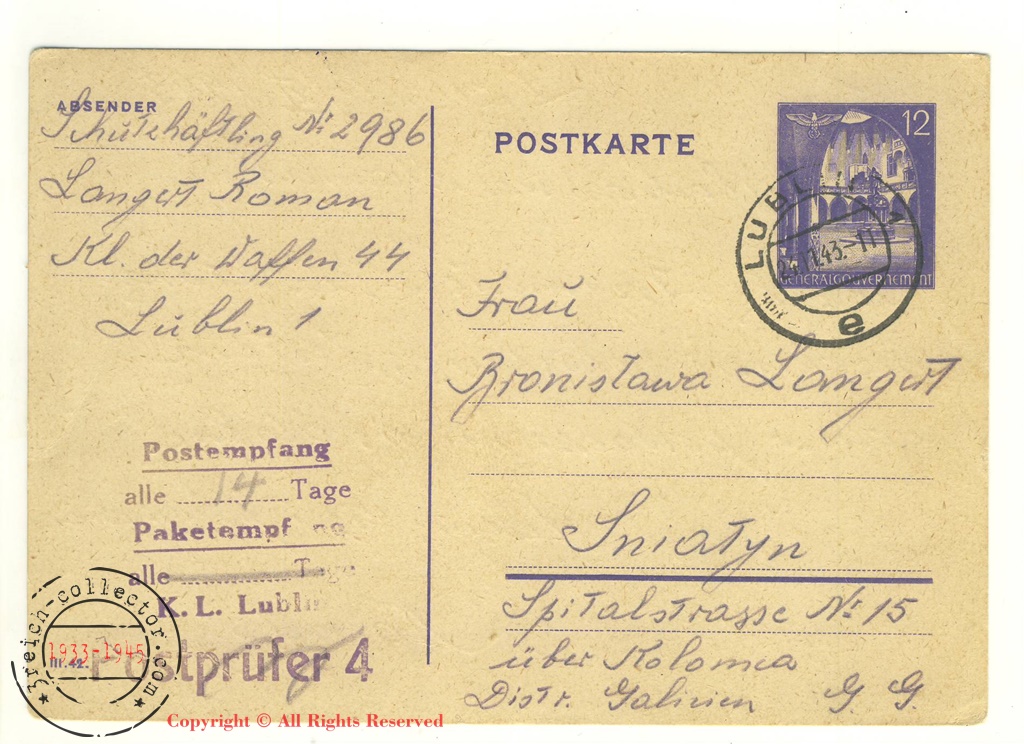 ABSENDER
Schutzhäftling Nr. 2986
Langert Roman
Kl. der Waffen 44
Lublin 1
POSTKARTE
12
GENERALGOUVERNEMENT
LUBLIN 1
.43.-11
e
Frau
Bronisława Langert
Sniatyn
Spitalstrasse Nr. 15
über Kolomea
Distr. Galizien G. G.
Postempfang
alle 14 Tage
Paketempfang
alle Tage
K. L. Lublin
Postprüfer 4
3reich-collector.com
1933-1945
Copyright © All Rights Reserved